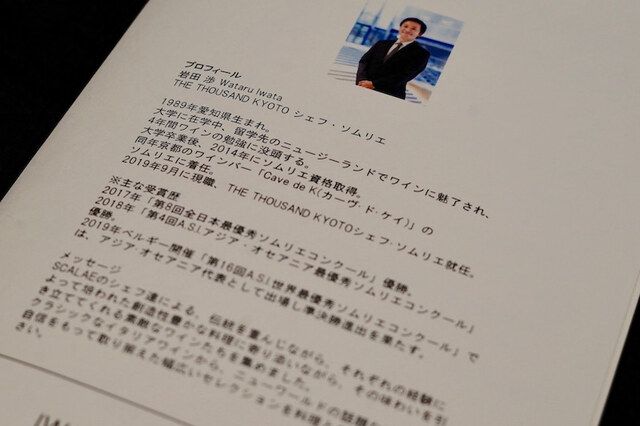 プロフィール
岩田 渉 Wataru Iwata
THE THOUSAND KYOTO シェフ・ソムリエ
1989年愛知県生まれ。
大学に在学中、留学先のニュージーランドでワインに魅了され、
4年間ワインの勉強に没頭する。
大学卒業後、2014年にソムリエ資格取得。
同年京都のワインバー「Cave de K(カーヴ・ド・ケイ)」の
ソムリエに着任。
2019年9月に現職、THE THOUSAND KYOTOシェフ・ソムリエ就任。
※主な受賞歴
2017年「第8回全日本最優秀ソムリエコンクール」優勝。
2018年「第4回A.S.I.アジア・オセアニア最優秀ソムリエコンクール」
優勝。
2019年ベルギー開催「第16回A.S.I.世界最優秀ソムリエコンクール」で
は、アジア・オセアニア代表として出場し準決勝進出を果たす。
メッセージ
SCALAEのシェフ達による、伝統を重んじながら、それぞれの経験に
よって培われた創造性豊かな料理に寄り添いながら、その味わいを引
き立ててくれる素敵なワインたちを集めました。
クラシックなイタリアワインから、ニューワールドの話題
自信をもって取り揃えた幅広いセレクションを料理と
さい。